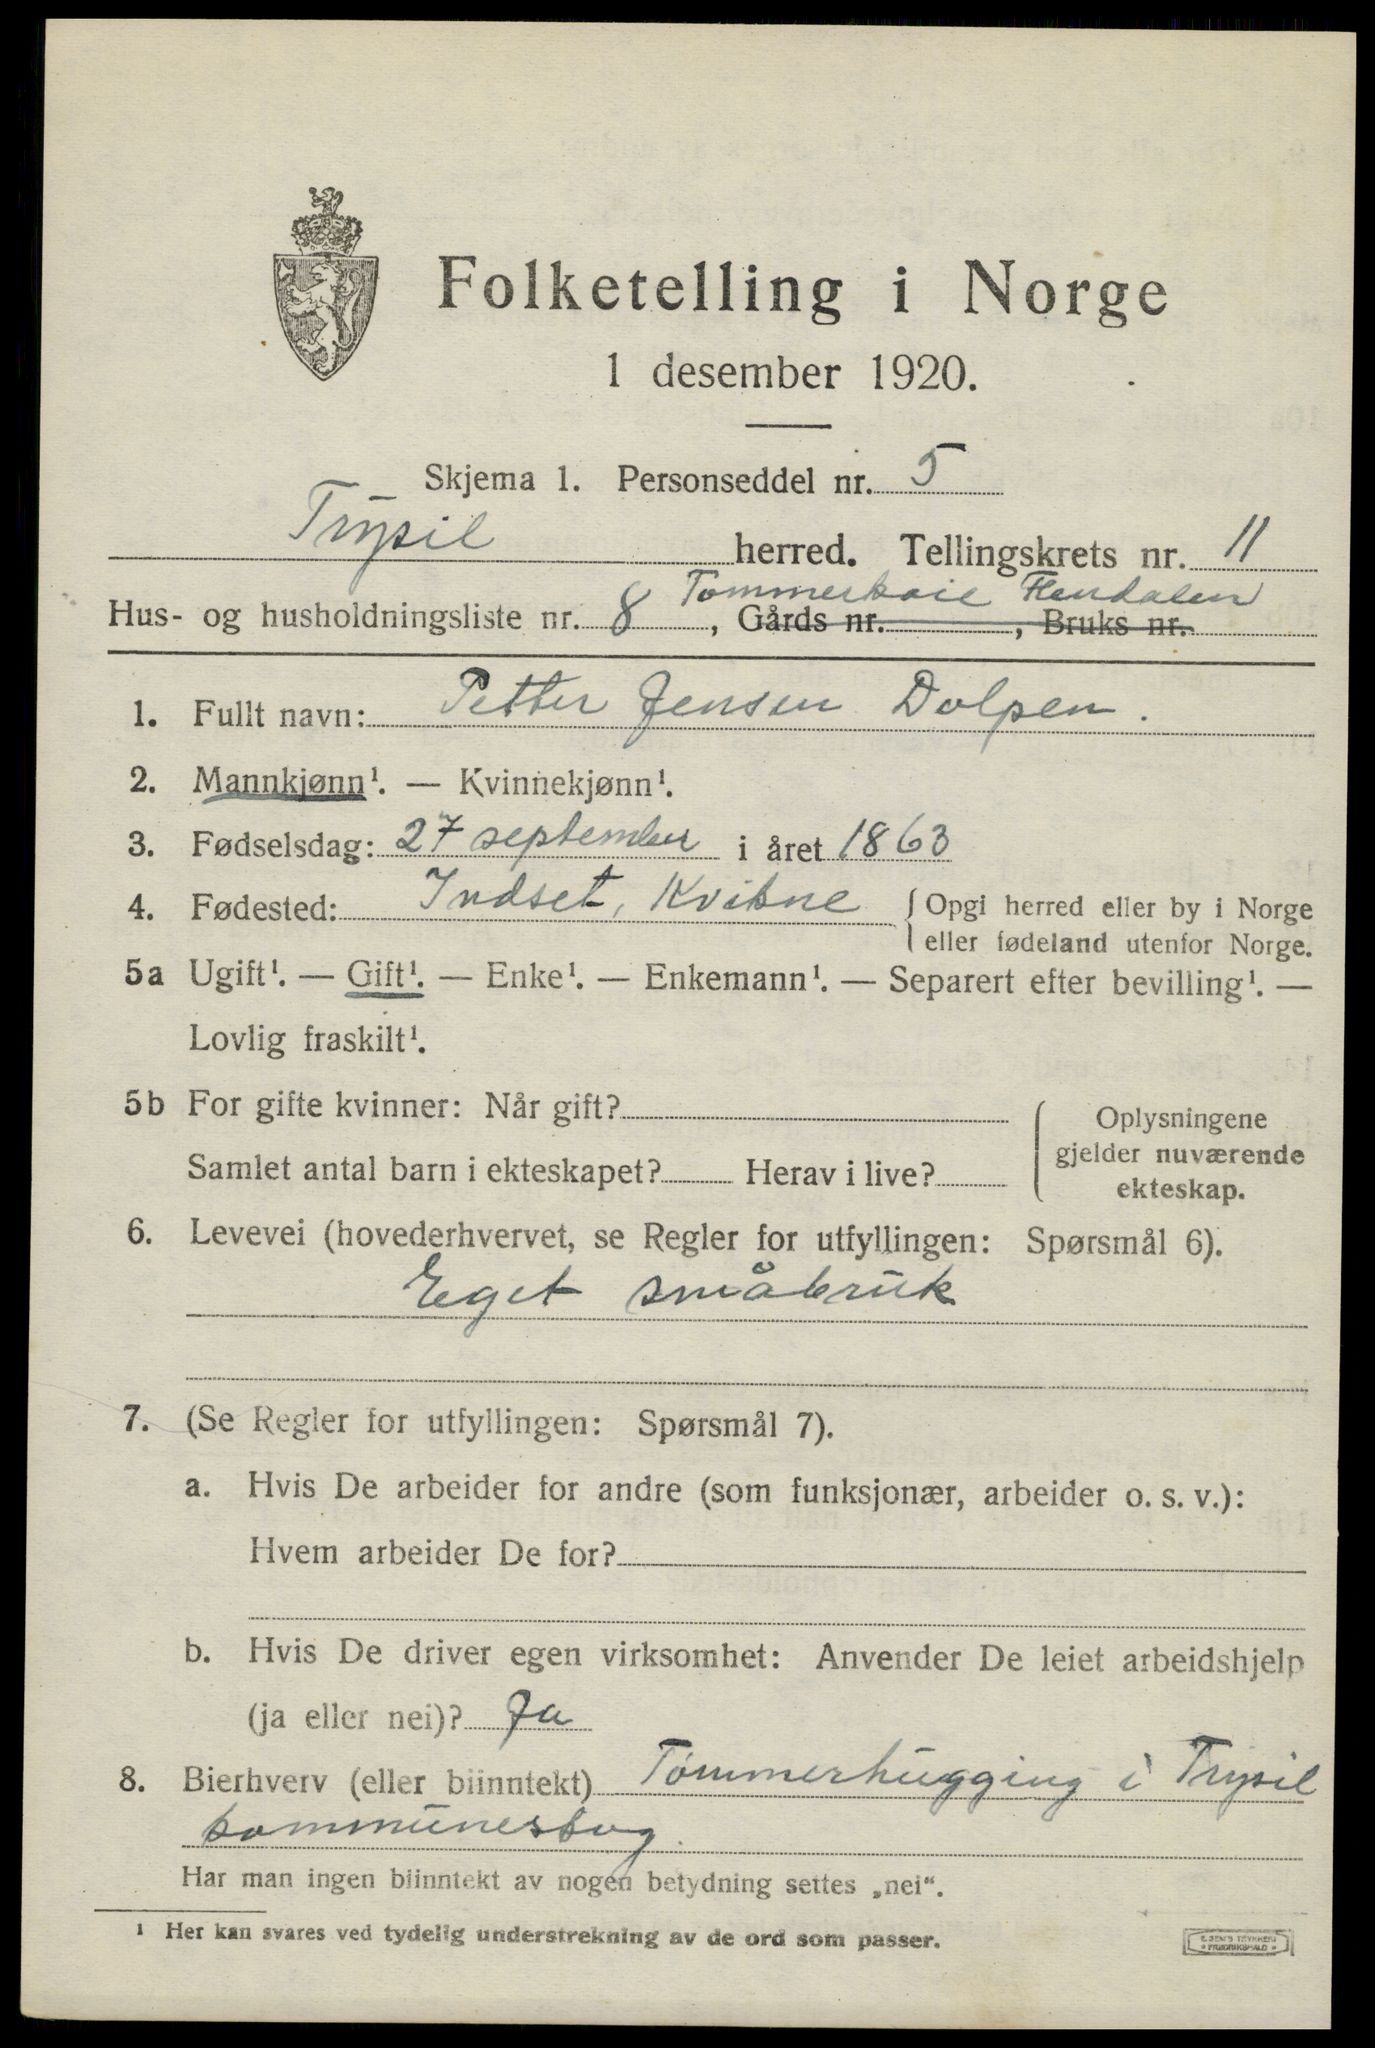 Folketelling i Norge
1 desember 1920.
Skjema 1. Personseddel nr. 5
Trysil herred. Tellingskrets nr. 11
Tømmerkoie Flendalen
Hus- og husholdningsliste nr. 8, Gårds nr. , Bruks nr.
1. Fullt navn: Petter Jensen Dolpen.
2. Mannkjønn¹. — Kvinnekjønn¹.
3. Fødselsdag: 27 september i året 1863
4. Fødested: Indset, Kvikne { Opgi herred eller by i Norge
eller fødeland utenfor Norge.
5a Ugift¹. — Gift¹. — Enke¹. — Enkemann¹. — Separert efter bevilling¹. —
Lovlig fraskilt¹.
5b For gifte kvinner: Når gift?
Samlet antal barn i ekteskapet? Herav i live?
{ Oplysningene
gjelder nuværende
ekteskap.
6. Levevei (hovederhvervet, se Regler for utfyllingen: Spørsmål 6).
Eget småbruk
7. (Se Regler for utfyllingen: Spørsmål 7).
a. Hvis De arbeider for andre (som funksjonær, arbeider o. s. v.):
Hvem arbeider De for?
b. Hvis De driver egen virksomhet: Anvender De leiet arbeidshjelp
(ja eller nei)? Ja
8. Bierhverv (eller biinntekt) Tømmerhugging i Trysil
kommuneskog.
Har man ingen biinntekt av nogen betydning settes „nei“.
¹ Her kan svares ved tydelig understrekning av de ord som passer.